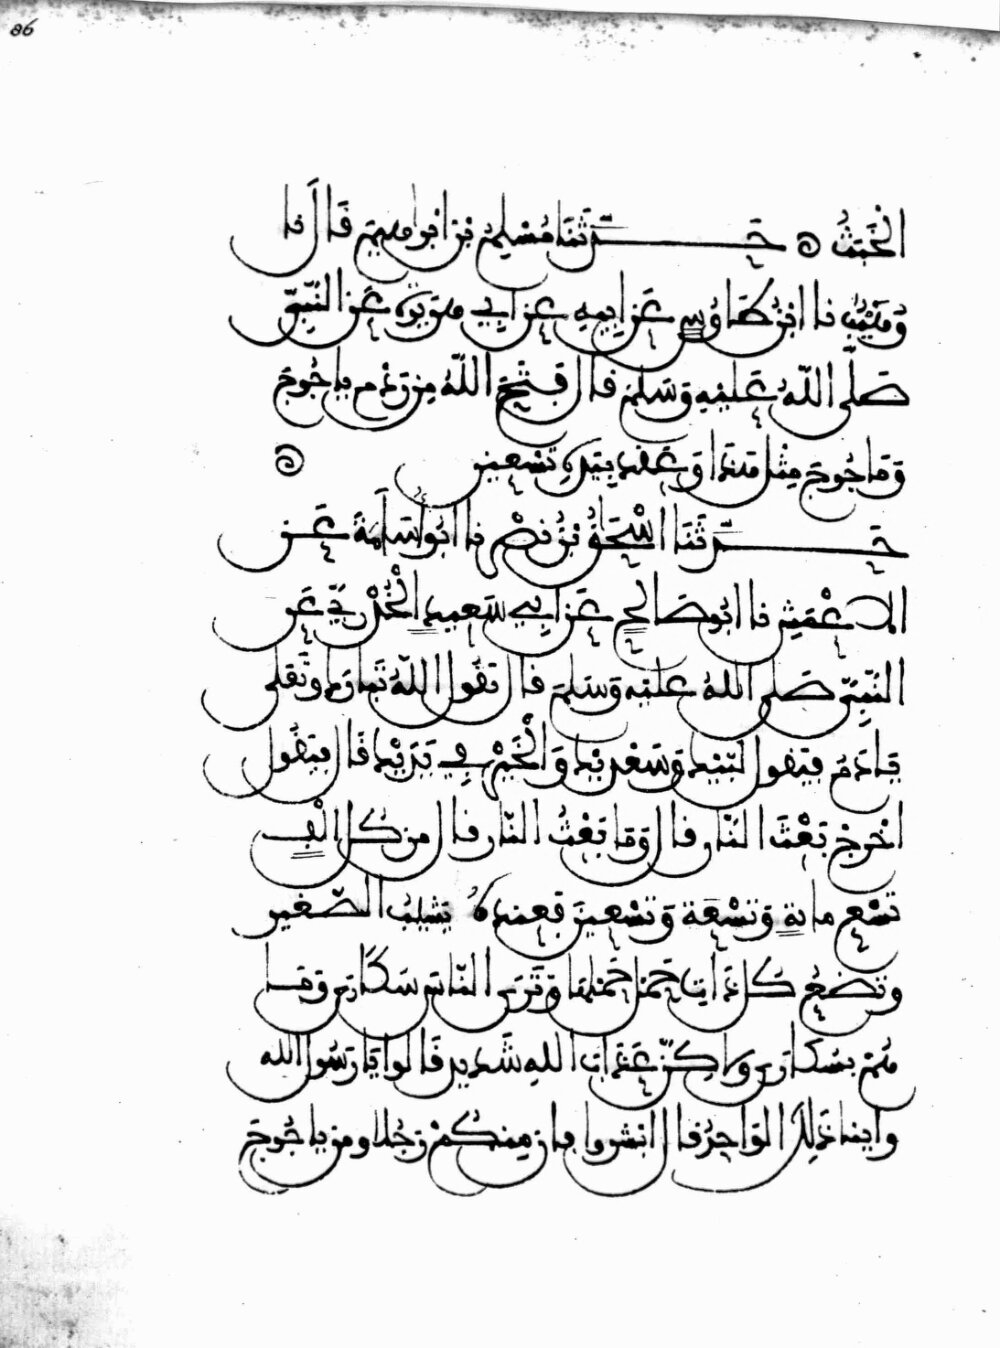 86
الْخَبَثُ ۞ حَدَّثَنَا مُسْلِمُ بْنُ ابْرٰهِيمَ قَالَ نا
وُهَيْبٌ نا ابْنُ طَاوُسٍ عَنْ ابِيهِ عَنْ ابِي هُرَيْرَةَ عَنِ النَّبِيِّ
صَلَّى اللّٰهُ عَلَيْهِ وَسَلَّمَ قَالَ فَتَحَ اللّٰهُ مِنْ رَدْمِ يَاجُوجَ
وَمَاجُوجَ مِثْلَ هَذَا وَعَقَدَ بِيَدِهِ تِسْعِينَ ۞
حَدَّثَنَا اسْحٰقُ بْنُ نَصْرٍ نا ابُو اُسَامَةَ عَنِ
الاعْمَشِ نا ابُو صَالِحٍ عَنْ ابِي سَعِيدٍ الْخُدْرِيِّ عَنِ
النَّبِيِّ صَلَّى اللهُ عَلَيْهِ وَسَلَّمَ قَالَ يَقُولُ اللّٰهُ تَبَارَكَ وَتَعَلَى
يَا ادَمُ فَيَقُولُ لَبَّيْكَ وَسَعْدَيْكَ وَالْخَيْرُ فِي يَدَيْكَ قَالَ فَيَقُولُ
اخْرِجْ بَعْثَ النَّارِ قَالَ وَمَا بَعْثُ النَّارِ قَالَ مِنْ كُلِّ الْفٍ
تِسْعَ مائَةٍ وَتِسْعَةً وَتِسْعِينَ فَعِنْدَهُ يَشِيبُ الصَّغِيرُ
وَتَضَعُ كُلُّ ذَاتِ حَمْلٍ حَمْلَهَا وَتَرَى النَّاسَ سُكَارَى وَمَا
هُمْ بِسُكَارَى وَلَكِنَّ عَذَابَ اللهِ شَدِيدٌ قَالُوا يَا رَسُولَ اللهِ
وَايُّنَا ذَلِكَ الْوَاحِدُ قَالَ ابْشِرُوا فَانَّ مِنْكُمْ رَجُلا وَمِنْ يَاجُوجَ